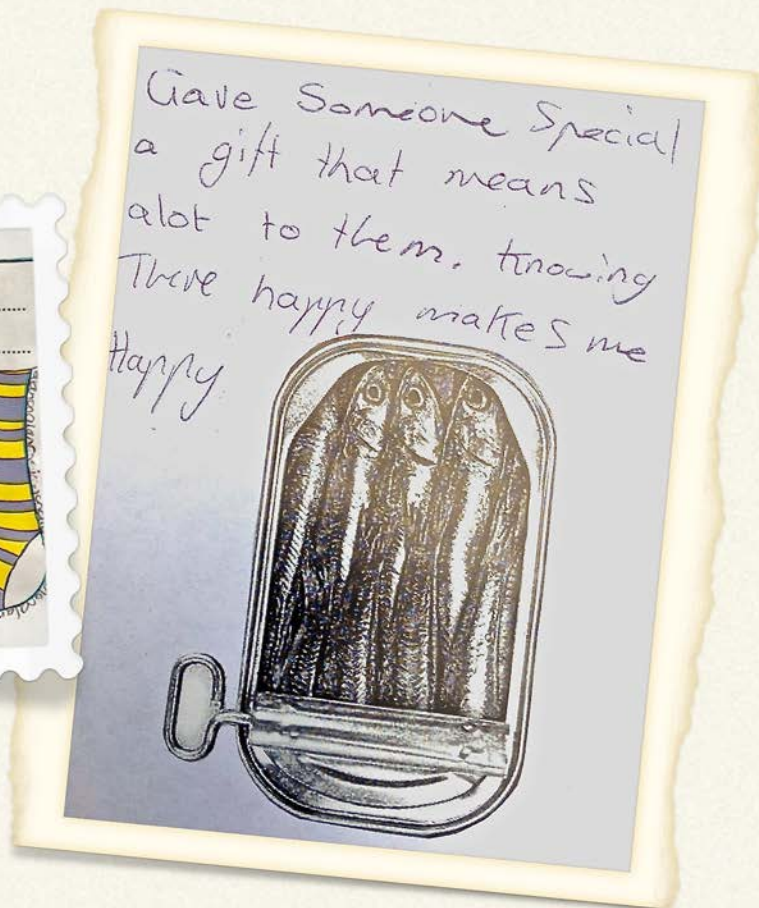 Gave Someone Special
a gift that means
alot to them. Knowing
There happy makes me
Happy